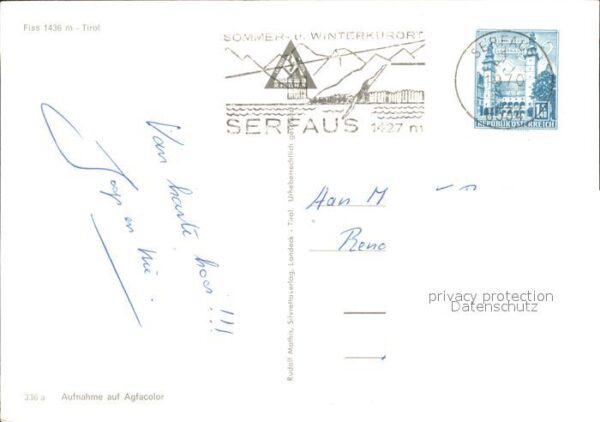 Fiss 1436 m - Tirol
SOMMER- u. WINTERKURORT
SERFAUS 1427 m
SERFAUS
1970
REPUBLIK ÖSTERREICH
Van harte hoor!!!
Joop en
Rudolf Mathis, Silvrettaverlag, Landeck - Tirol. Urheberrechtlich
Aan M
Reno
privacy protection
Datenschutz
336 a Aufnahme auf Agfacolor